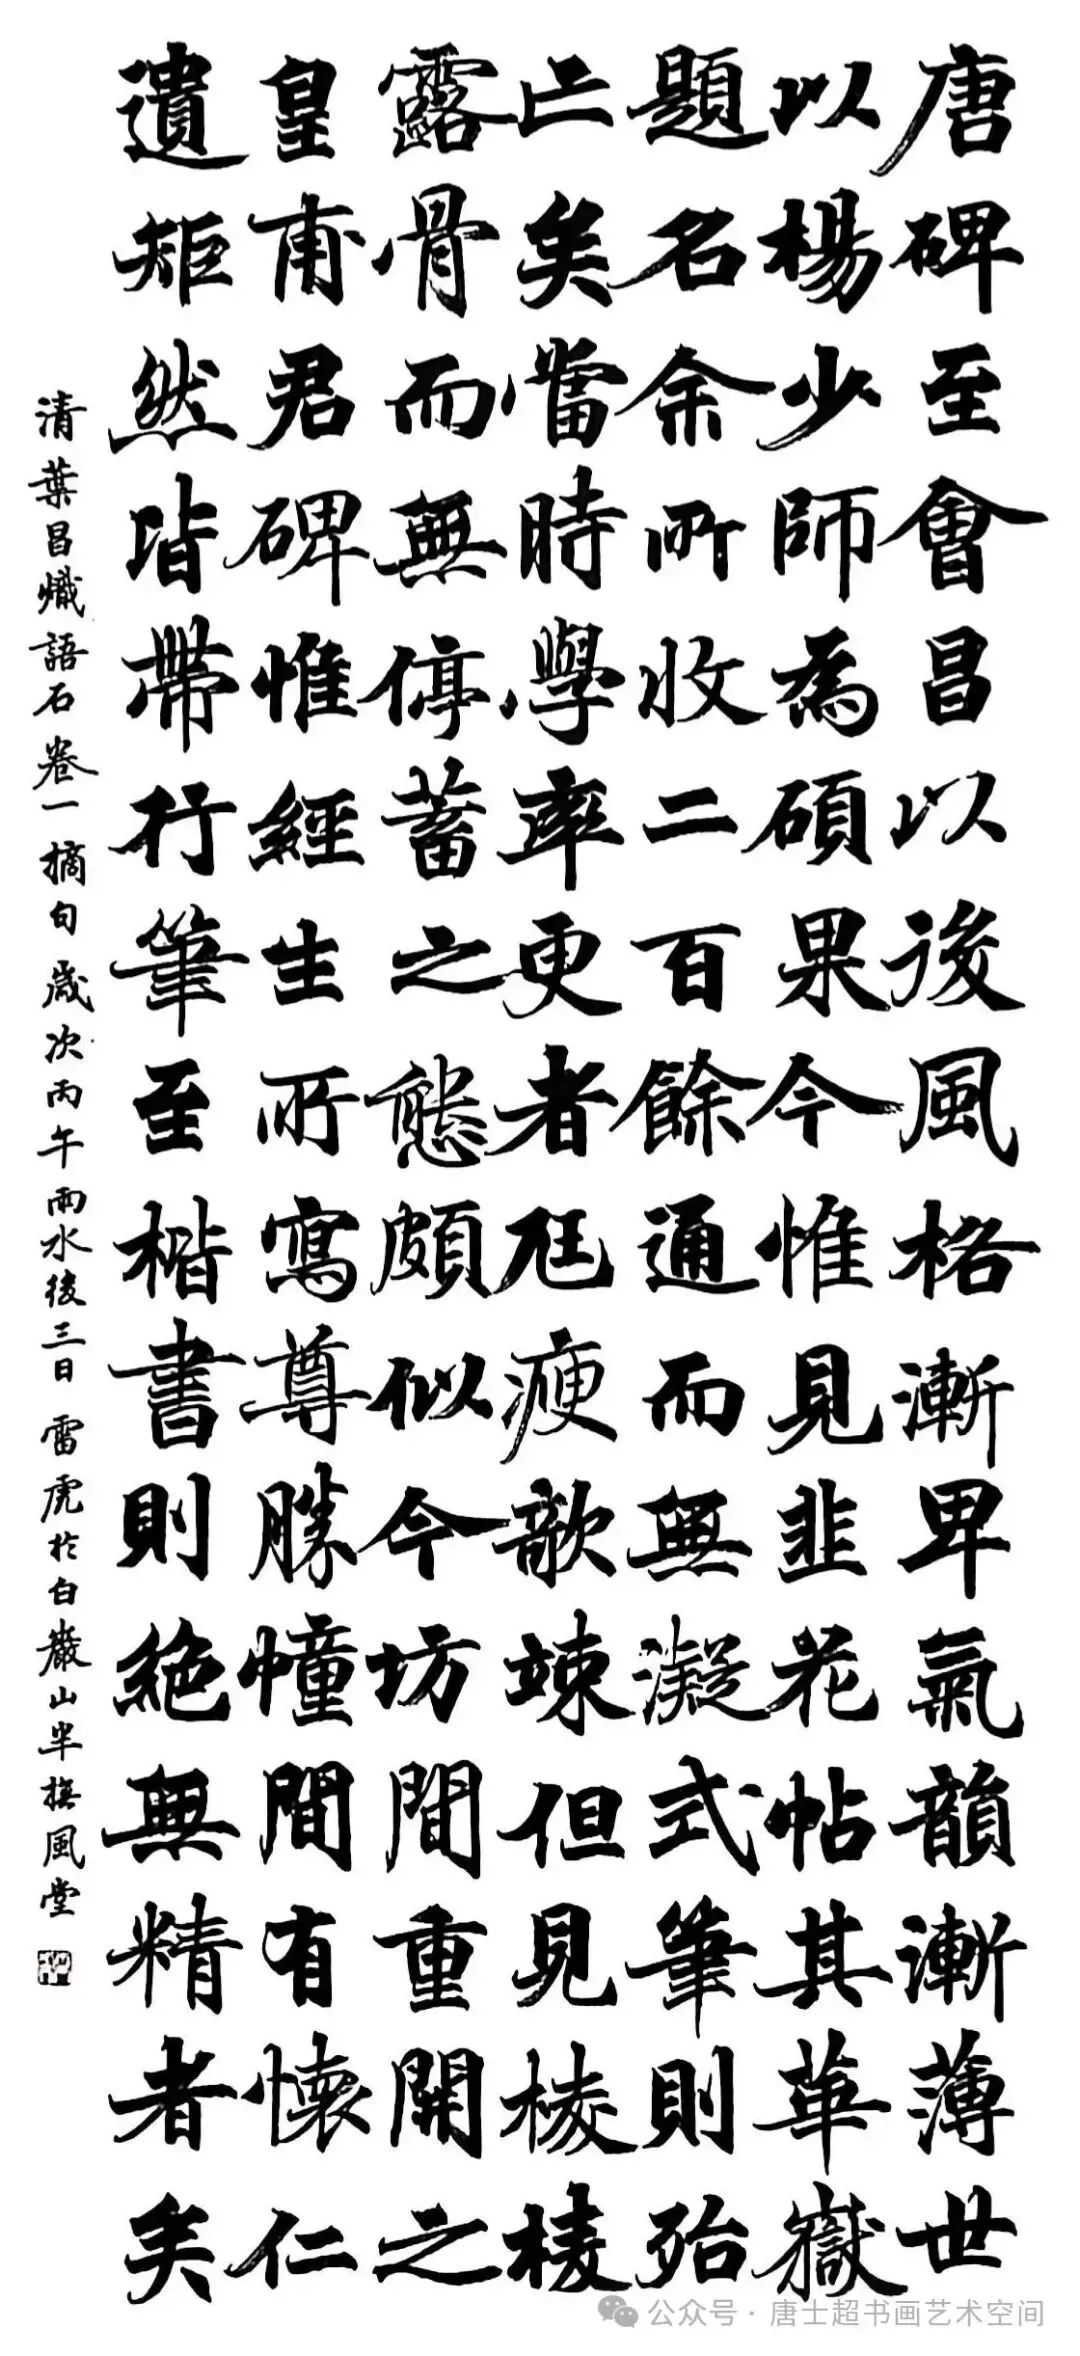 唐碑至會昌以後風格漸卑氣韻漸薄世
以楊少師為碩果今惟見韭花帖其華嶽
題名余所收二百餘通而無凝式筆則殆
亡矣當時學率更者尪瘦欹竦但見棱棱
露骨而無停蓄之態頗似今坊間重開之
皇甫君碑惟經生所寫尊勝幢間有懷仁
遺矩然皆帶行筆至楷書則絕無精者矣
清葉昌熾語石卷一摘句歲次丙午雨水後三日雷虎於白巖山半撫風堂
公众号·唐士超书画艺术空间